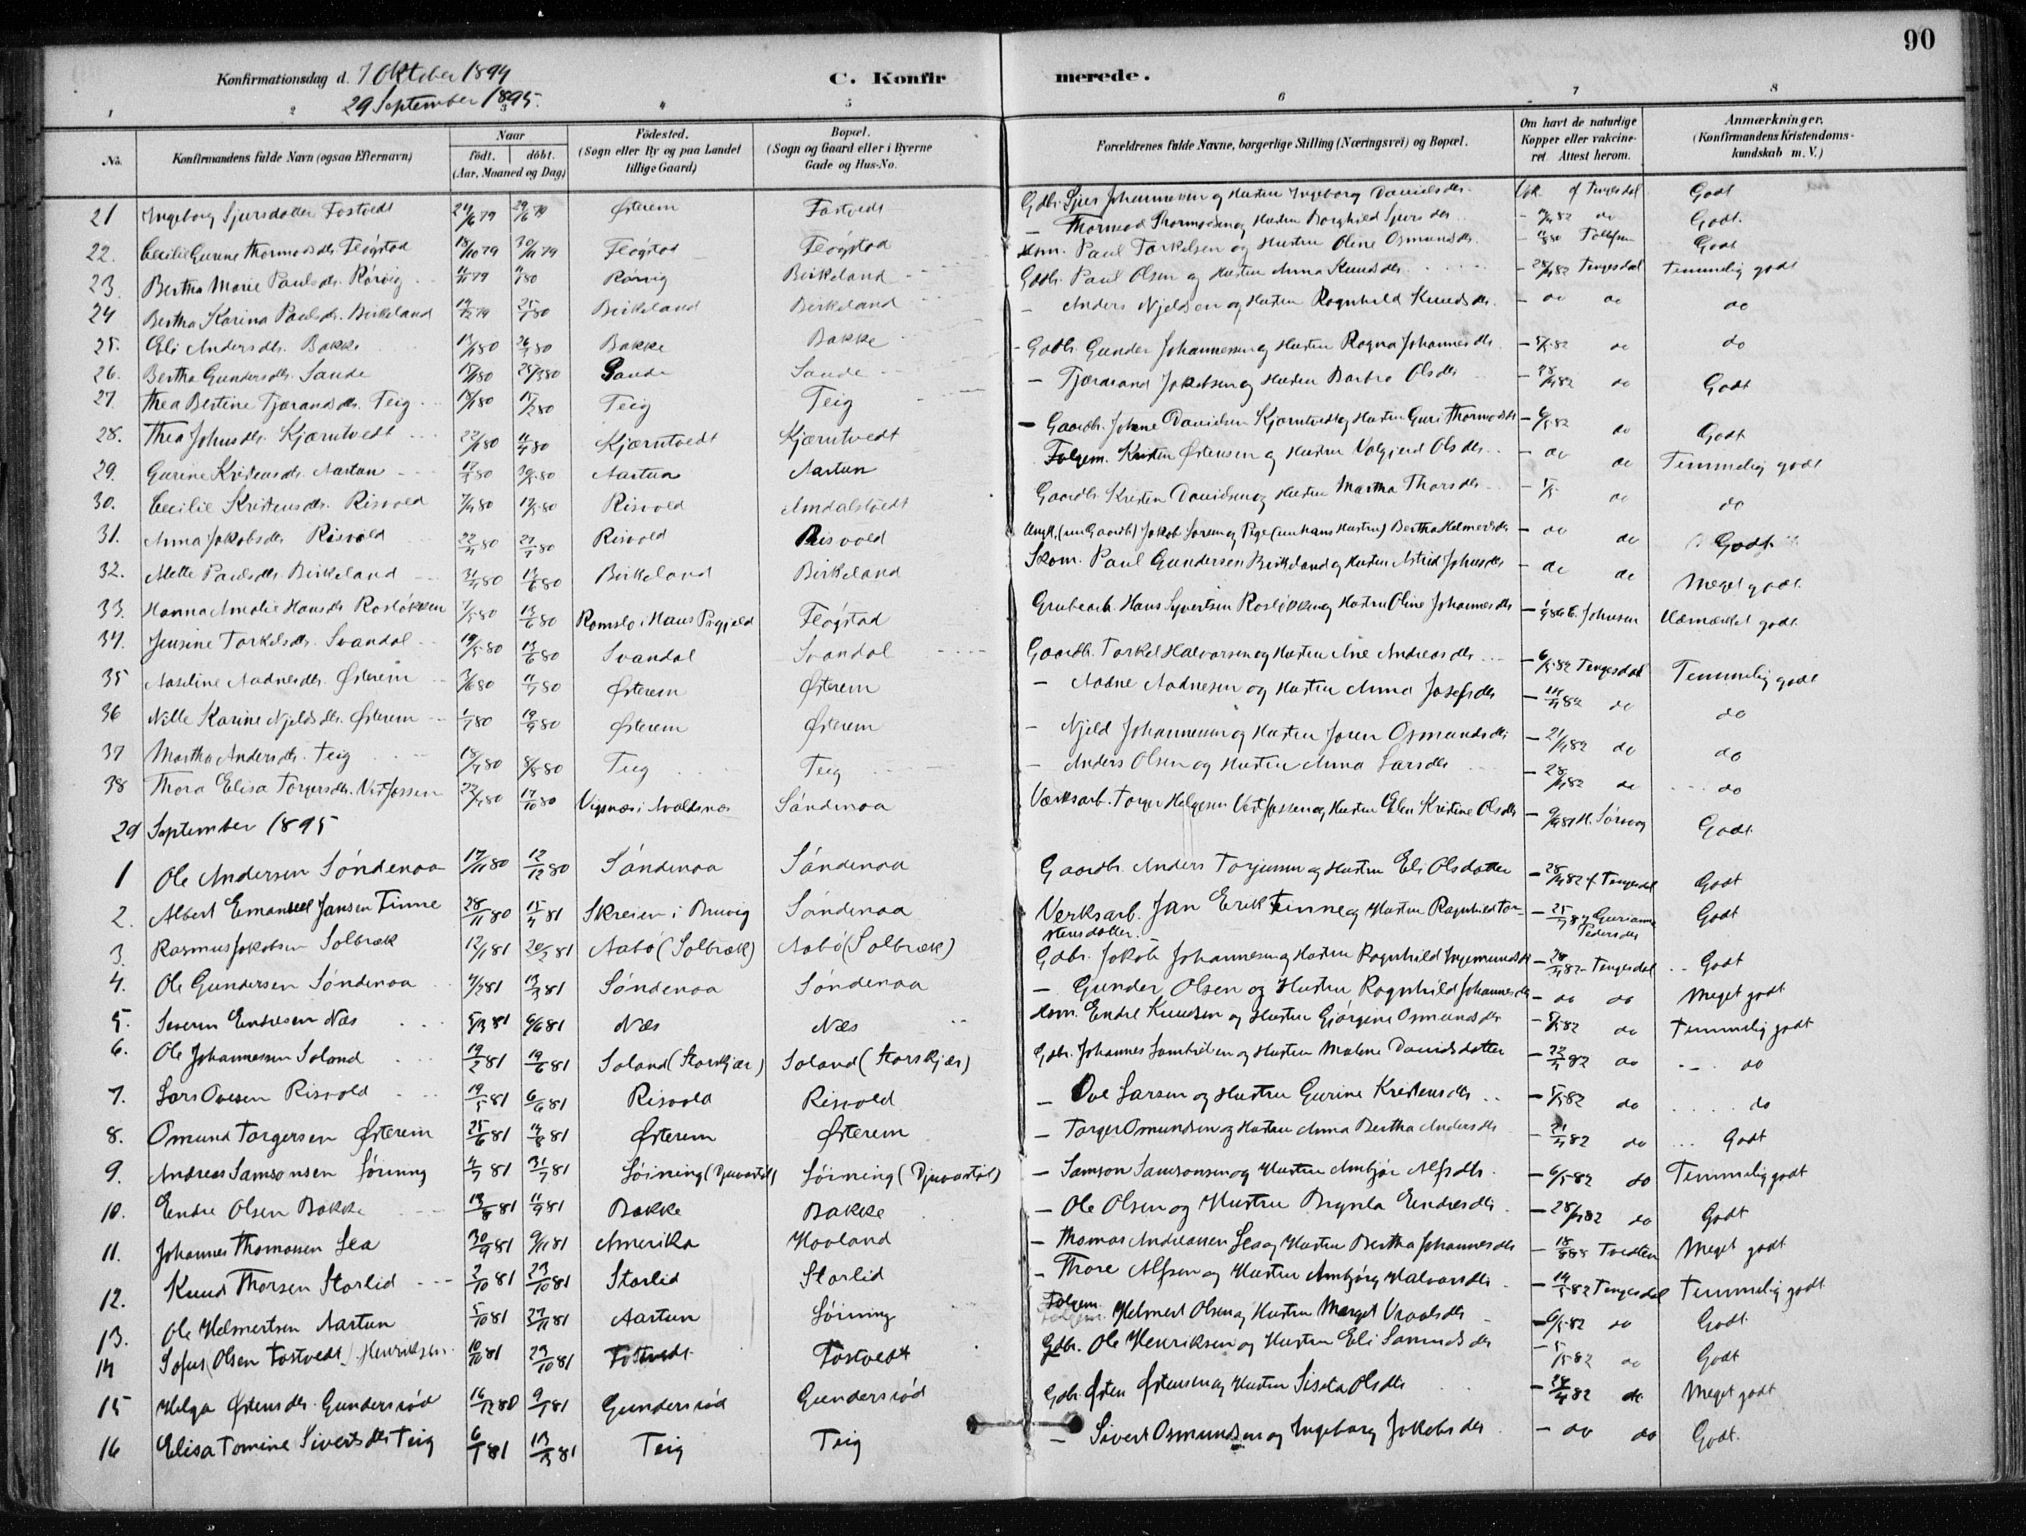 90
Konfirmationsdag d. 7 Oktober 1894
29 September 1895.
C. Konfirmerede.
1 2 3 4 5 6 7 8
No. | Konfirmandens fulde Navn (ogsaa Efternavn) | Naar født. døbt. (Aar, Moaned og Dag) | Fødested. (Sogn eller By og paa Landet tillige Gaard) | Bopæl. (Sogn og Gaard eller i Byerne Gade og Hus-No. | Forældrenes fulde Navne, borgerlige Stilling (Næringsvei) og Bopæl. | Om havt de naturlige Kopper eller vakcineret. Attest herom. | Anmærkninger. (Konfirmandens Kristendomskundskab m. V.)
21 Ingeborg Sjursdatter Fostvedt 24/6 79 29/6 79 Østerem Fostvedt Gdbr. Sjur Johannessen og Hustru Ingeborg Davidsdtr. af Tengesdal Godt
22. Cecilie Gurine Thormodsdtr. Fløgstad 13/10 79 30/11 79 Fløgstad Fløgstad – Thormod Thormodsen og Hustru Borghild Sjursdtr. 82 do Godt.
23. Bertha Marie Paulsdtr. Rørvig 79 80 Rørvig Birkeland Hsm. Paul Torkelsen og Hustru Oline Osmundsdtr. 80 Tollefsen Godt
24 Bertha Karina Paulsdtr. Birkeland 79 25/1 80 Birkeland Birkeland Gdbr. Paul Olsen og Hustru Anna Knudsdtr. – 28/4 82 Tengesdal Temmelig godt
25. Eli Andersdtr. Bakke 13/1 80 26/1 80 Bakke Bakke – Anders Njeldsen og Hustru Ragnhild Knudsdtr. – do do do
26. Bertha Gundersdtr. Sande 17/1 80 25/3 80 Sande Sande – Gdbr. Gunder Johannessen og Hustru Ragna Johannesdtr. – 5/5 82 do do
27. Thea Bertine Tjerandsdtr. Teig 18/1 80 15/2 80 Teig Teig – Tjærand Jakobsen og Hustru Barbro Olsdtr – 28/4 82 do Godt
28. Thea Johnsdtr. Kjærntvedt 22/1 80 11/4 80 Kjærntvedt Kjærntvedt – Gaardbr. John Davidsen Kjærntvedt og Hustru Guri Thormodsdtr – 6/5 82 do Godt
29. Gurine Kristensdtr. Aartun 80 80 Aartun Aartun Folgem. Kristen Østensen og Hustru Valgjerd Olsdtr. – do do Temmelig godt
30. Cecilie Kristensdtr. Risvold 7/4 80 17/5 80 Risvold Amdalstvedt Gaardbr. Kristen Davidsen og Hustru Martha Thorsdtr. – 5/5 do do
31. Anna Jakobsdtr. Risvold 22/4 80 27/7 80 Risvold Risvold Ungk. (nu Gaardb) Jakob Sørensen og Pige (nu hans Hustru) Bertha Helmersdtr – do do Godt
32. Mette Paulsdtr. Birkeland 21/4 80 13/6 80 Birkeland Birkeland Skom. Paul Gundersen Birkeland og Hustru Astrid Johnsdtr – do do Meget godt.
33. Hanna Amalie Hansdtr Rosløkken 7/5 80 13/6 80 Romslo i Haus Prgjæld Fløgstad Grubearb. Hans Syvertsen Rosløkken og Hustru Oline Johannesdtr – E. Johnsen Udmærket godt.
34. Jensine Torkelsdtr. Svandal 19/5 80 13/6 80 Svandal Svandal Gaardbr. Torkel Halvorsen og Hustru Ane Andreasdtr – 6/5 82 Tengesdal Temmelig godt
35 Aaseline Aadnesdtr. Østerem 3/6 80 11/7 80 Østerem Østerem – Aadne Aadnesen og Hustru Anna Josefsdtr – 82 do do
36 Nille Karine Njeldsdtr. Østerem 1/7 80 19/9 80 Østerem Østerem – Njeld Johannessen og Hustru Joren Osmundsdtr – 21/4 82 do do
37 Martha Andersdtr. Teig 18/7 80 8/8 80 Teig Teig – Anders Olsen og Hustru Anna Larsdtr – 28/4 82 do do
38 Thora Elisa Torgersdtr. Vestfossen 22/7 80 17/10 80 Vigsnæs i Avaldsnæs Søndenaa Værksarb. Torger Helgesen Vestfossen og Hustru Elen Kristine Olsdtr – 81 H. Sørvig Godt.
29 September 1895
1 Ole Andersen Søndenaa 17/11 80 12/12 80 Søndenaa Søndenaa Gaardbr. Anders Torjussen og Hustru Eli Olsdatter – 28/4 82 f. Tengesdal Godt
2. Albert Emanuel Jansen Finne 28/11 80 15/4 81 Skreien i Bruvig Søndenaa Verksarb. Jan Erik Finne og Hustru Ragnhild Torstensdatter. – 25/7 87 Gurianne Pedersdtr Godt
3. Rasmus Jakobsen Solbræk 12/1 81 20/3 81 Aabø (Solbræk) Aabø (Solbræk) Gdbr. Jakob Johannessen og Hustru Ragnhild Ingemundsdtr – 28/4 82 – Tengesdal Godt
4. Ole Gundersen Søndenaa 4/2 81 13/3 81 Søndenaa Søndenaa – Gunder Olsen og Hustru Ragnhild Johannesdtr – do do Meget godt
5. Severin Endresen Næs 5/3 81 6/6 81 Næs Næs Hsm. Endre Knudsen og Hustru Gjørgine Osmundsdtr – 5/5 82 do Temmelig godt
6. Ole Johannessen Soland 19/2 81 19/6 81 Soland (Storskjær) Soland (Storskjær) Gdbr. Johannes Lambertsen og Hustru Malene Davidsdatter – 22/4 82 do do
7. Lars Ovesen Risvold 19/5 81 6/6 81 Risvold Risvold – Ove Larsen og Hustru Gurine Kristensdtr – 5/5 82 do do
8. Osmund Torgersen Østerem 25/6 81 14/8 81 Østerem Østerem – Torger Osmundsen og Hustru Anna Bertha Andersdtr – 21/4 82 do Godt
9. Andreas Samsonsen Søining 4/7 81 31/7 81 Søining (Djuvastøl) Søining (Djuvastøl) – Samson Samsonsen og Hustru Ambjør Alfsdtr. – 6/5 82 do Temmelig godt
10. Endre Olsen Bakke 13/8 81 11/9 81 Bakke Bakke – Ole Olsen og Hustru Brynla Endresdtr. – 28/4 82 do Godt
11. Johannes Thomassen Lea 30/9 81 9/11 81 Amerika Hovland – Thomas Andreassen Lea og Hustru Bertha Johannesdtr – 18/8 88 Tvedten Meget godt
12. Knud Thorsen Storlid 2/10 81 23/10 81 Storlid Storlid – Thore Alfsen og Hustru Ambjørg Halvorsdtr – 19/5 82 Tengesdal Temmelig godt
13. Ole Helmertsen Aartun 5/10 81 27/11 81 Aartun Søining Folgem. Helmert Olsen og Hustru Marget Vraalsdtr – 6/5 82 do Godt.
14 Sofus (Olsen Fostvedt) Henriksen 10/10 81 23/10 81 Fostvedt Fostvedt Gdbr. Ole Henriksen og Hustru Eli Samundsdtr – 5/5 82 do Godt
15 Helga Østensdtr. Gundersrød 16/12 80 9/1 81 Gundersrød Gundersrød Gdbr. Østen Østensen og Hustru Siseta Olsdtr – 28/4 82 do Meget godt
16 Elisa Tomine Sivertsdtr Teig 6/1 81 13/3 81 Teig Teig – Sivert Osmundsen og Ingeborg Jakobsdtr – do do Godt.